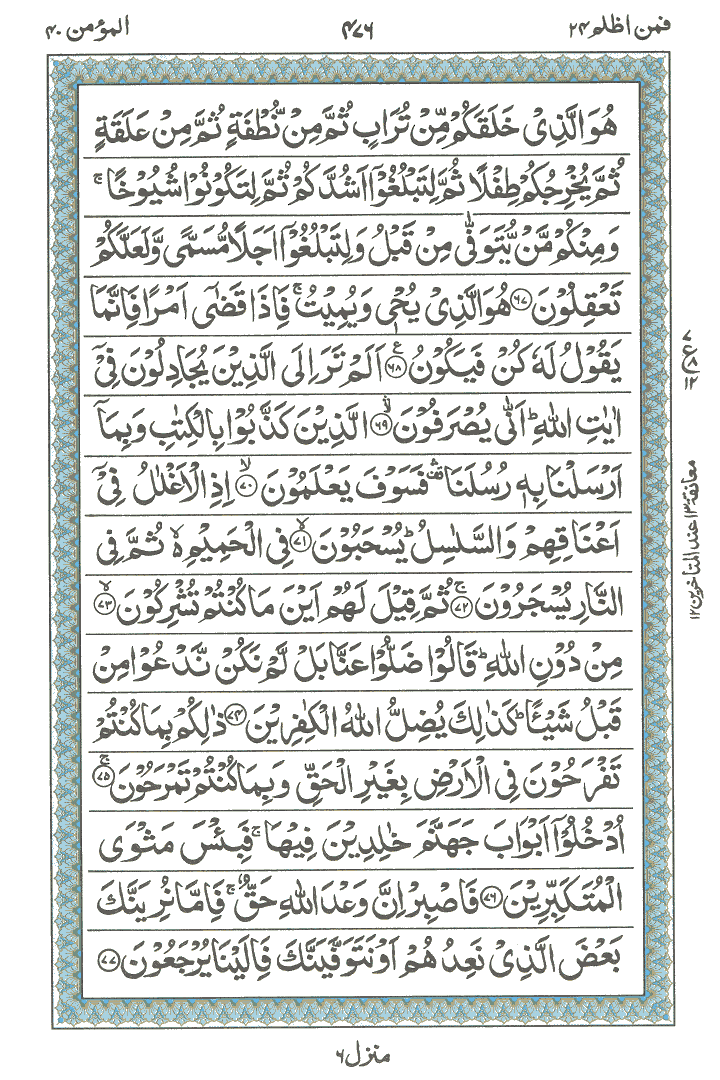 فمن اظلم ۲۴ ۴۷۶ المؤمن ۴۰
هُوَ الَّذِیْ خَلَقَكُمْ مِّنْ تُرَابٍ ثُمَّ مِنْ نُّطْفَةٍ ثُمَّ مِنْ عَلَقَةٍ
ثُمَّ یُخْرِجُكُمْ طِفْلًا ثُمَّ لِتَبْلُغُوْۤا اَشُدَّكُمْ ثُمَّ لِتَكُوْنُوْا شُیُوْخًا ۚ
وَ مِنْكُمْ مَّنْ یُّتَوَفّٰی مِنْ قَبْلُ وَ لِتَبْلُغُوْۤا اَجَلًا مُّسَمًّی وَّ لَعَلَّكُمْ
تَعْقِلُوْنَ ۶۷ هُوَ الَّذِیْ یُحْیٖ وَ یُمِیْتُ ۚ فَاِذَا قَضٰۤی اَمْرًا فَاِنَّمَا
یَقُوْلُ لَهٗ كُنْ فَیَكُوْنُ ۶۸ ع اَلَمْ تَرَ اِلَی الَّذِیْنَ یُجَادِلُوْنَ فِیْۤ
اٰیٰتِ اللّٰهِ ؕ اَنّٰی یُصْرَفُوْنَ ۶۹ الَّذِیْنَ كَذَّبُوْا بِالْكِتٰبِ وَ بِمَاۤ
اَرْسَلْنَا بِهٖ رُسُلَنَا ۛ۫ فَسَوْفَ یَعْلَمُوْنَ ۷۰ اِذِ الْاَغْلٰلُ فِیْۤ
اَعْنَاقِهِمْ وَ السَّلٰسِلُ ؕ یُسْحَبُوْنَ ۷۱ فِی الْحَمِیْمِ ۙ۬ ثُمَّ فِی
النَّارِ یُسْجَرُوْنَ ۷۲ ثُمَّ قِیْلَ لَهُمْ اَیْنَ مَا كُنْتُمْ تُشْرِكُوْنَ ۷۳
مِنْ دُوْنِ اللّٰهِ ؕ قَالُوْا ضَلُّوْا عَنَّا بَلْ لَّمْ نَكُنْ نَّدْعُوْا مِنْ
قَبْلُ شَیْـًٔا ؕ كَذٰلِكَ یُضِلُّ اللّٰهُ الْكٰفِرِیْنَ ۷۴ ذٰلِكُمْ بِمَا كُنْتُمْ
تَفْرَحُوْنَ فِی الْاَرْضِ بِغَیْرِ الْحَقِّ وَ بِمَا كُنْتُمْ تَمْرَحُوْنَ ۷۵
اُدْخُلُوْۤا اَبْوَابَ جَهَنَّمَ خٰلِدِیْنَ فِیْهَا ۚ فَبِئْسَ مَثْوَی
الْمُتَكَبِّرِیْنَ ۷۶ فَاصْبِرْ اِنَّ وَعْدَ اللّٰهِ حَقٌّ ۚ فَاِمَّا نُرِیَنَّكَ
بَعْضَ الَّذِیْ نَعِدُهُمْ اَوْ نَتَوَفَّیَنَّكَ فَاِلَیْنَا یُرْجَعُوْنَ ۷۷
۷ ع ۸ ۱۲
معانقة ۱۳ عند المتاخرین ۱۲
منزل ۶